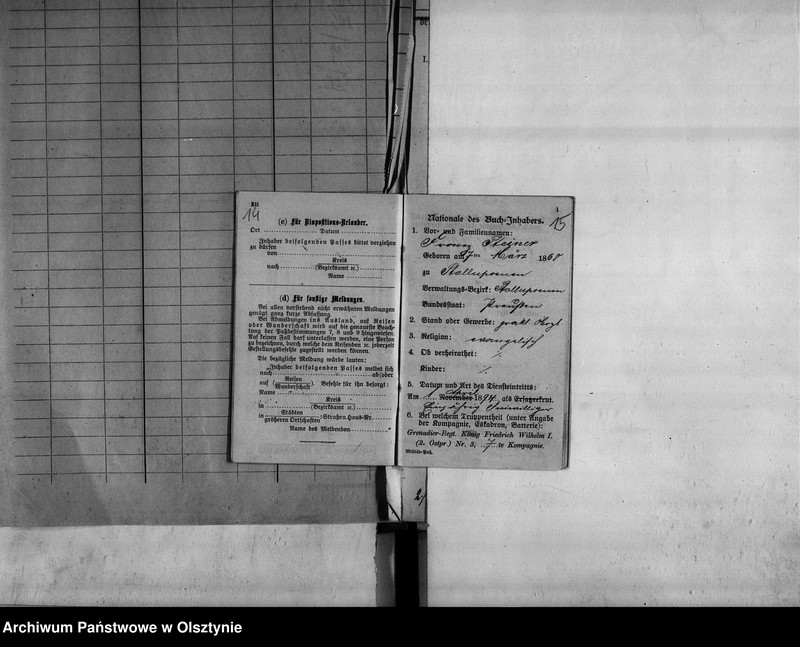 XII
14
(c) Für Dispositions-Urlauber.
Ort Datum
Inhaber beifolgenden Passes bittet verziehen
zu dürfen
von
Kreis
nach (Bezirksamt ꝛc.)
Name
(d) Für sonstige Meldungen.
Bei allen vorstehend nicht erwähnten Meldungen
genügt ganz kurze Abfassung.
Bei Abmeldungen ins Ausland, auf Reisen
oder Wanderschaft wird auf die genaueste Beach-
tung der Paßbestimmungen 7, 8 und 9 hingewiesen.
Auf keinen Fall darf unterlassen werden, eine Person
zu bezeichnen, durch welche dem Reisenden ꝛc. jederzeit
Gestellungsbefehle zugestellt werden können.
Die bezügliche Meldung würde lauten:
„Inhaber beifolgenden Passes meldet sich
nach ab/ober
auf (Reisen
Wanderschaft). Befehle für ihn besorgt:
Name
Kreis
in (Bezirksamt ꝛc.)
in Städten
größeren Ortschaften, Straßen, Haus-Nr.
Name des Meldenden "
1
15
Nationale des Buch-Inhabers.
1. Vor- und Familiennamen:
Franz Steiner
Geboren am 7ten März 1868
zu Stallupönen
Verwaltungs-Bezirk: Stallupönen
Bundesstaat: Preußen
2. Stand oder Gewerbe: prakt. Arzt
3. Religion: evangelisch
4. Ob verheirathet: ·/.
Kinder: ·/.
5. Datum und Art des Diensteintritts:
April
Am 1. November 1894, als Ersatzrekrut.
Einjährig Freiwilliger
6. Bei welchem Truppentheil (unter Angabe
der Kompagnie, Eskadron, Batterie):
Grenadier-Regt. König Friedrich Wilhelm I.
(2. Ostpr.) Nr. 3, 7te Kompagnie.
Militär-Paß.
2/
Archiwum Państwowe w Olsztynie